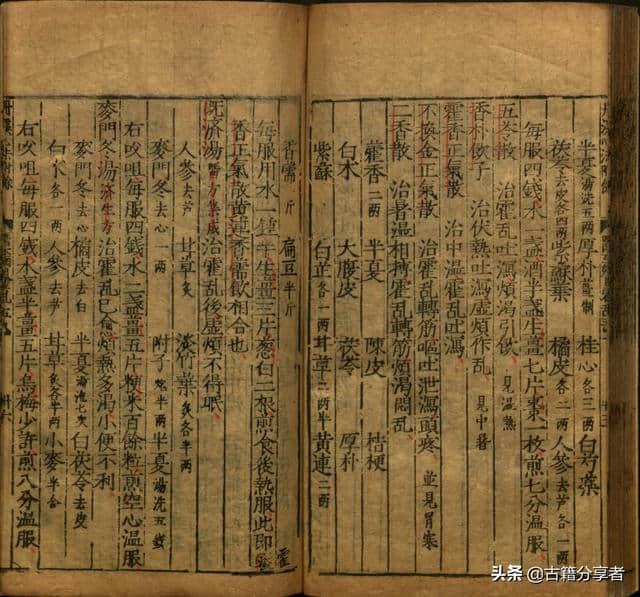 半夏湯洗五兩厚朴薑製 桂心各三兩白芍藥
茯苓去皮各四兩紫蘇葉 橘皮各二兩人參去芦各一兩
每服四錢水一盞酒半盞生薑七片棗一枚煎七分溫服
五苓散 治霍乱吐瀉煩渴引飲 見溫熱
香朴飲子 治伏熱吐瀉虛煩作乱 見中暑
藿香正氣散 治中温霍乱吐瀉
不換金正氣散 治霍乱轉筋嘔吐泄瀉頭疼 並見冒寒
二香散 治暑湿相搏霍乱轉筋煩渴悶乱
藿香二兩 半夏 陳皮 桔梗
白朮 大腹皮 茯苓 厚朴
紫蘇 白芷各一兩 甘草二兩半 黃連二兩
香薷一斤 扁豆半斤
每服用水一鍾半生薑三片葱白二根煎食後熱服此即藿
香正氣散黃連香薷飲相合也
既済湯醫方集成治霍乱後虛煩不得眠
人參去芦 甘草炙 淡竹葉各半兩
麥門冬去心一兩 附子炮半兩 半夏湯洗五錢
右㕮咀每服四錢水二盞薑五片粳米百餘粒煎空心温服
麥門冬湯済生方治霍乱已愈煩熱多渴小便不利
麥門冬去心 橘皮去白 半夏湯泡七次 白茯苓去皮
白朮各一兩 人參去芦 甘草炙各半兩 小麥半合
右㕮咀每服四錢水盞半薑五片烏梅少許煎八分温服
头条 @古籍分享者